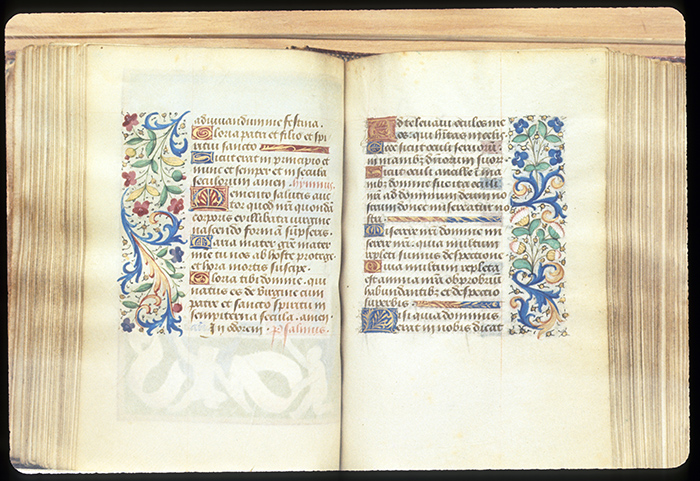 adiuuandum me festina.
Gloria patri et filio et spi
ritui sancto
Sicut erat in principio et
nunc et semper et in secula
seculorum amen. hymnus.
Memento salutis auc
tor quod nostri quondam
corporis ex illibata uirgine
nascendo formam sumpseris.
Maria mater gracie mater
misericordie tu nos ab hoste protege
et hora mortis suscipe.
Gloria tibi domine qui
natus es de uirgine cum
patre et sancto spiritu in
sempiterna secula. amen.
In odorem Psalmus.
Ad te leuaui oculos me
os: qui habitas in celis
Ecce sicut oculi seruorum
in manibus dominorum suorum
Sicut oculi ancille in ma
nibus domine sue ita oculi
nostri ad dominum deum no
strum donec misereatur no
stri
Miserere nostri domine mi
serere nostri: quia multum
repleti sumus despectione
Quia multum repleta
est anima nostra obprobrium
habundantibus et despectio
superbis
Nisi quia dominus
erat in nobis dicat